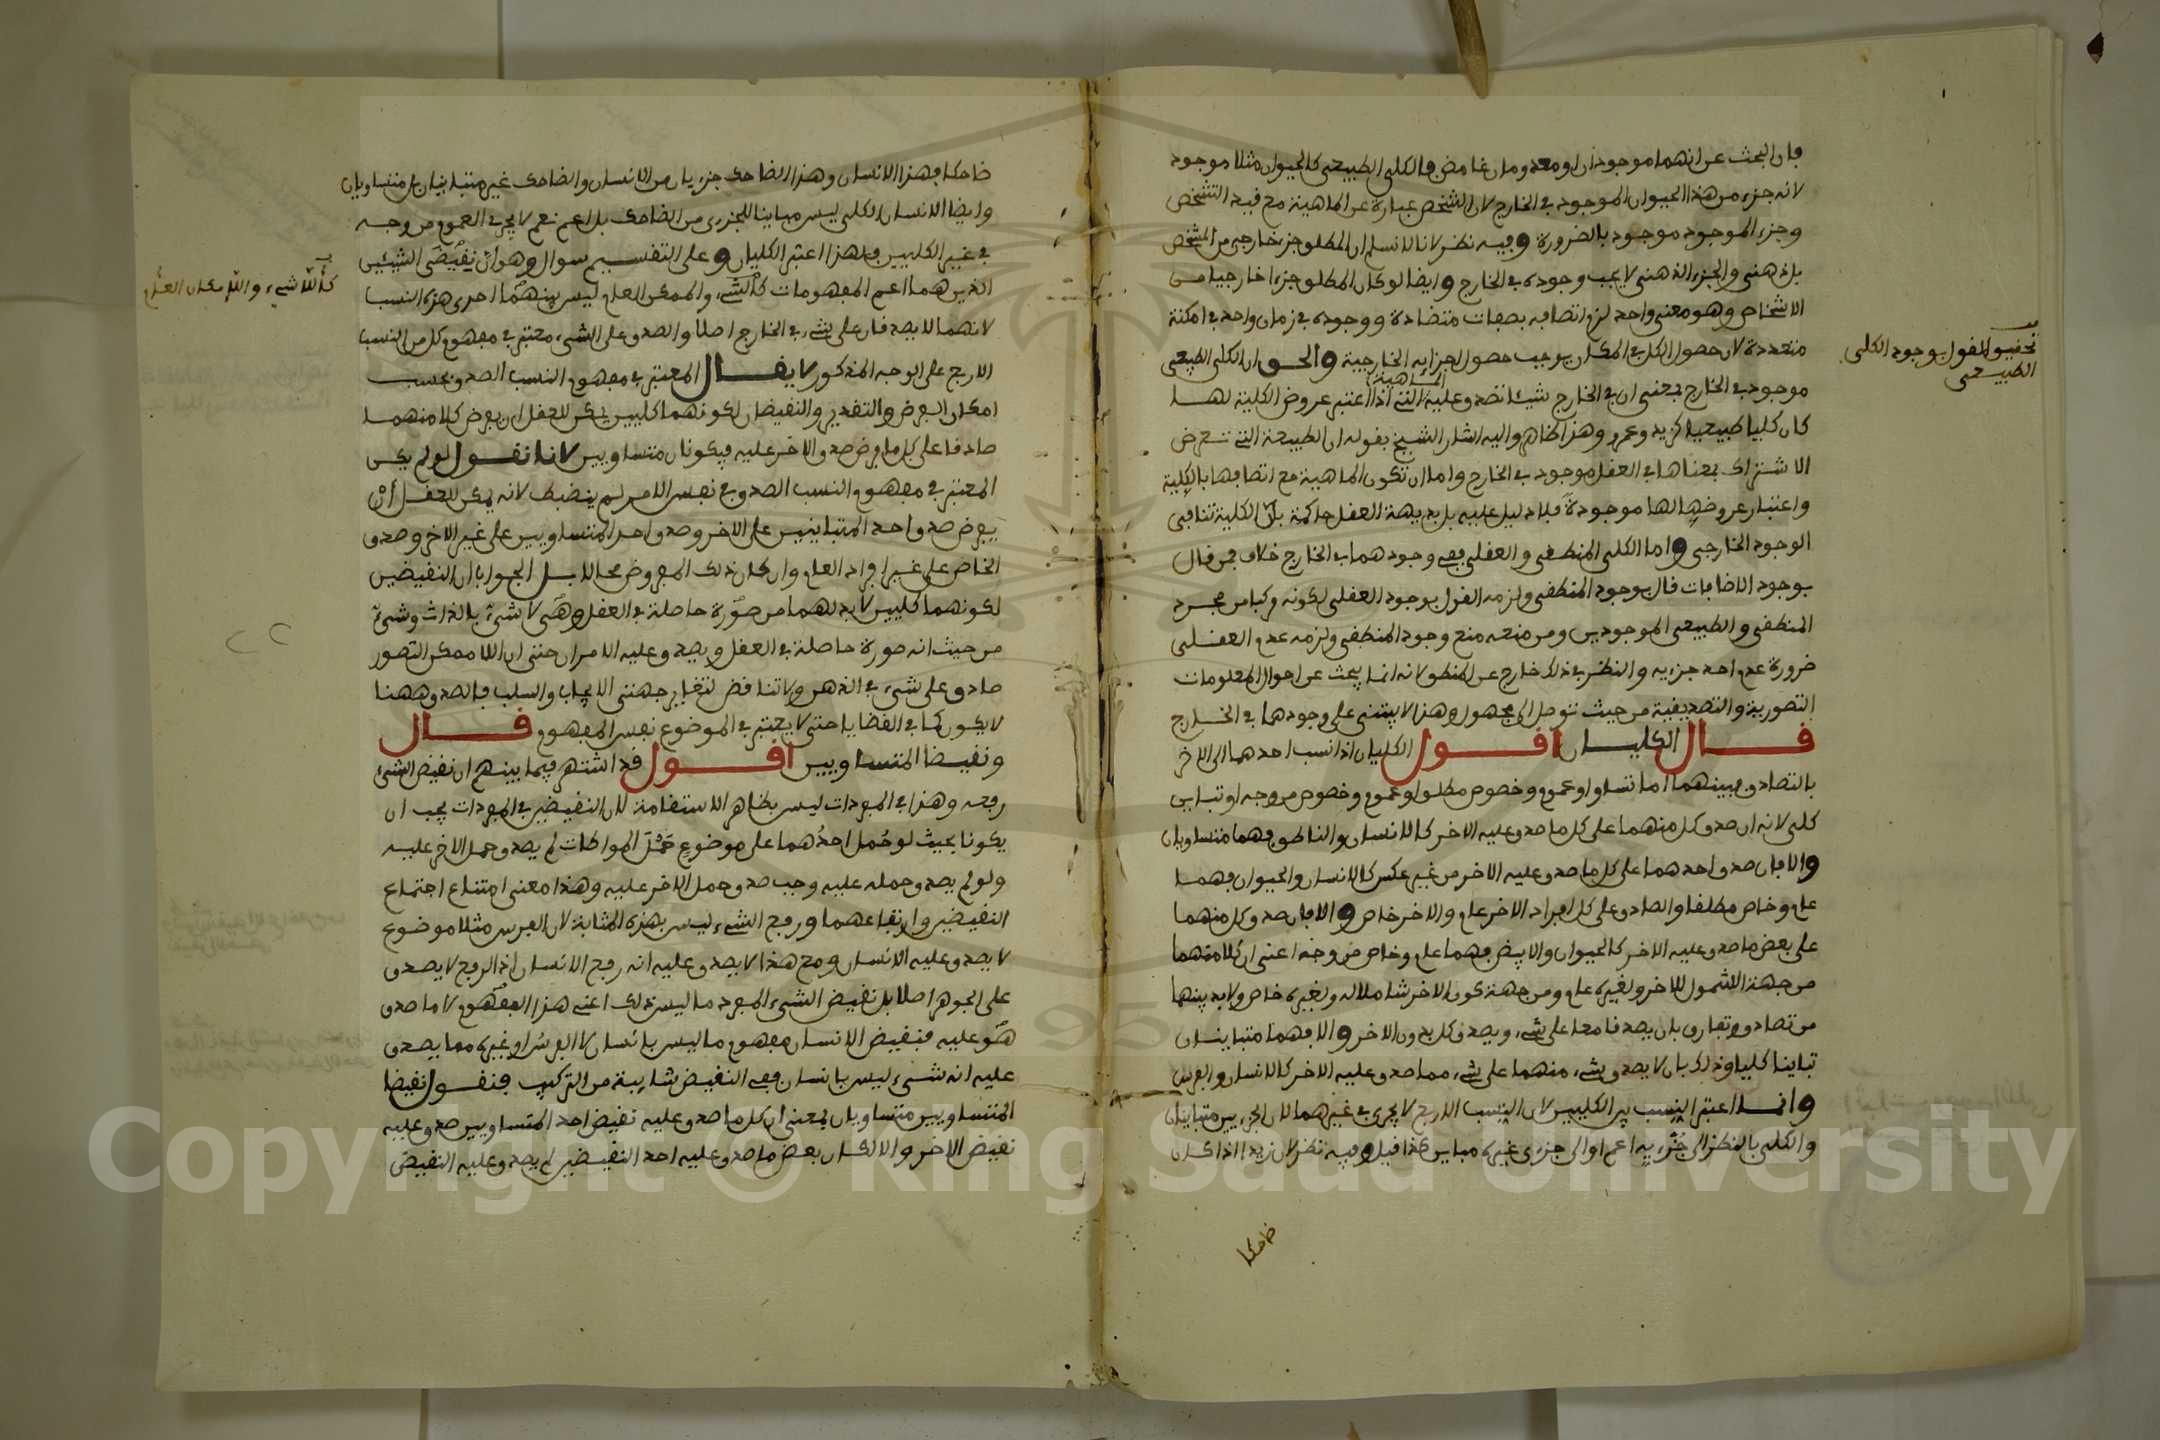 فان البحث عن انهما موجودان او معدومان غامض فالكلي الطبيعي كالحيوان مثلا موجود
لانه جزء من هذا الحيوان الموجود في الخارج لان الشخص عبارة عن الماهية مع قيد التشخص
وجزء الموجود موجود بالضرورة وفيه نظر لانا لا نسلم ان المطلق جزء خارجي من الشخص
بل ذهني والجزء الذهني لا يجب وجوده في الخارج وايضا لو كان المطلق جزءا خارجيا من
الاشخاص وهو معنى واحد لزم اتصافه بصفات متضادة ووجوده في زمان واحد في امكنة
متعددة لان حصول الكل في المكان يوجب حصول اجزايه الخارجية والحق ان الكلي الطبيعي
موجود في الخارج بمعنى ان في الخارج شيئا تصدق عليه الماهية التي اذا اعتبر عروض الكلية لها
كان كليا طبيعيا كزيد وعمرو وهذا ظاهر واليه اشار الشيخ بقوله ان الطبيعة التي تعرض
الاشتراك بمعناها في العقل موجود في الخارج واما ان تكون الماهية مع اتصافها بالكلية
واعتبار عروضها لها موجودة فلا دليل عليه بل بديهة العقل حاكمة بان الكلية تنافي
الوجود الخارجي واما الكلي المنطقي والعقلي ففي وجودهما في الخارج خلاف فمن قال
بوجود الاضافات قال بوجود المنطقي ولزمه القول بوجود العقلي لكونه مركبا من مجرد
المنطقي والطبيعي الموجودين ومن منعه منع وجود المنطقي ولزمه عدم العقلي
ضرورة عدم احد جزءيه والنظر في ذلك خارج عن المنطق لانه انما يبحث عن احوال المعلومات
التصورية والتصديقية من حيث توصل الى مجهول وهذا لا يبتني على وجودها في الخارج
قال الكليان اقول الكليان اذا نسب احدهما الى الاخر
بالتصادق فبينهما اما تساو او عموم وخصوص مطلق او عموم وخصوص من وجه او تباين
كلي لانه ان صدق كل منهما على كل ما صدق عليه الاخر كالانسان والناطق فهما متساويان
والا فان صدق احدهما على كل ما صدق عليه الاخر من غير عكس كالانسان والحيوان فهما
عام وخاص مطلقا والصادق على كل افراد الاخر عام والاخر خاص والا فان صدق كل منهما
على بعض ما صدق عليه الاخر كالحيوان والابيض فهما عام وخاص من وجه اعني ان كلا منهما
من جهة الشمول للاخر ولغيره عام ومن جهة كون الاخر شاملا له ولغيره خاص ولا بد بينهما
من تصادق وتفارق بان يصدقا معا على شيء ويصدق كل بدون الاخر والا فهما متباينان
تباينا كليا وذلك بان لا يصدق شيء منهما على شيء مما صدق عليه الاخر كالانسان والفرس
وانما اعتبر النسب بين الكليين لان النسب الاربع لا يجرى في غيرهما لان الجزءيين متباينان
والكلي بالنظر الى جزءيه اعم او الى جزءي غيره مباين كذا قيل وفيه نظر لان زيدا اذا كان
ضاحكا
تحقيق القول بوجود الكلي
الطبيعي
ضاحكا فهذا الانسان وهذا الضاحك جزءيان من الانسان والضاحك غير متباينان بل متساويان
وايضا الانسان الكلي ليس مباينا للجزءي من الضاحك بل اعم نعم لا يجرى العموم من وجه
في غير الكليين فلهذا اعتبر الكليان وعلى التقسيم سوال وهو ان نقيضي الشيئين
الذين هما اعم المفهومات كالشيء والممكن العام ليس بينهما احدى هذه النسب
لانهما لا يصدقان على شيء في الخارج اصلا والصدق على الشيء معتبر في مفهوم كل من النسب
الاربع على الوجه المذكور لا يقال المعتبر في مفهوم النسب الصدق بحسب
امكان الفرض والتقدير والنقيضان لكونهما كليين يمكن للعقل ان يفرض كلا منهما
صادقا على كل ما فرض صدق الاخر عليه فيكونان متساويين لانا نقول لو لم يكن
المعتبر في مفهوم النسب الصدق في نفس الامر لم ينضبط لانه يمكن للعقل ان
يفرض صدق احد المتباينين على الاخر وصدق احد المتساويين على غير الاخر وصدق
الخاص على غير افراد العام وان كان ذلك المفروض محالا بل الجواب ان النقيضين
لكونهما كليين لا بد لهما من صورة حاصلة في العقل وهي لا شيء بالذات وشيء
من حيث انه صورة حاصلة في العقل ويصدق عليه الامران حتى ان اللا ممكن التصور
صادق على شيء في الذهن ولا تناقض لتغاير جهتي الايجاب والسلب فالصدق ههنا
لا يكون كما في القضايا حتى لا يعتبر في الموضوع نفس المفهوم قال
ونقيضا المتساويين اقول قد اشتهر فيما بينهم ان نقيض الشيء
رفعه وهذا في المفردات ليس بظاهر الاستقامة لان النقيضين في المفردات يجب ان
يكونا بحيث لو حُمل احدُهما على موضوعٍ حَمْلَ المواطات لم يصدق حمل الاخر عليه
ولو لم يصدق حمله عليه وجب صدق حمل الاخر عليه وهذا معنى امتناع اجتماع
النقيضين وارتفاعهما ورفع الشيء ليس بهذه المثابة لان الفرس مثلا موضوع
لا يصدق عليه الانسان ومع هذا لا يصدق عليه انه رفع الانسان اذ الرفع لا يصدق
على الجوهر اصلا بل نقيض الشيء المفرد ما ليس ذلك اعني هذا المفهوم لا ما صدق
هو عليه فنقيض الانسان مفهوم ما ليس بانسان لا الفرس او غيره مما يصدق
عليه انه شيء ليس بانسان ففي النقيض شايبة من التركيب فنقول نقيضا
المتساويين متساويان بمعنى ان كل ما صدق عليه نقيض احد المتساويين صدق عليه
نقيض الاخر والا لكان بعض ما صدق عليه احد النقيضين لم يصدق عليه النقيض
كاللا شيء واللا مكان العام
Copyright © King Saud University